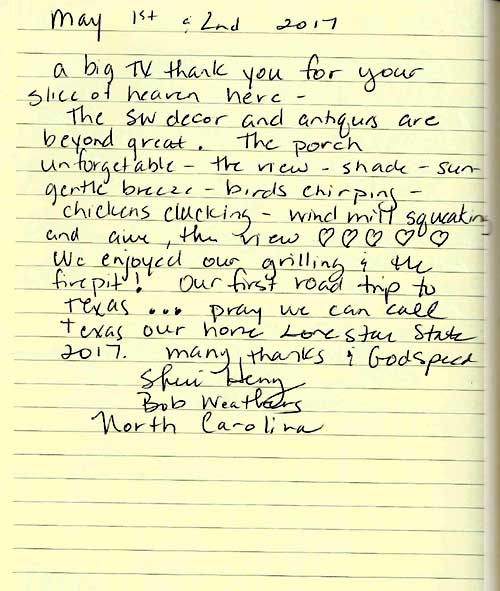 May 1st & 2nd 2017
a big TX thank you for your
slice of heaven here -
The SW decor and antiques are
beyond great. The porch
unforgetable - the view - shade - sun -
gentle breeze - birds chirping -
chickens clucking - wind mill squeaking
and aww, the view ♡♡♡♡♡
We enjoyed our grilling & the
firepit! Our first road trip to
Texas ... pray we can call
Texas our home Lone Star State
2017. many thanks & Godspeed
Bob Weathers
North Carolina